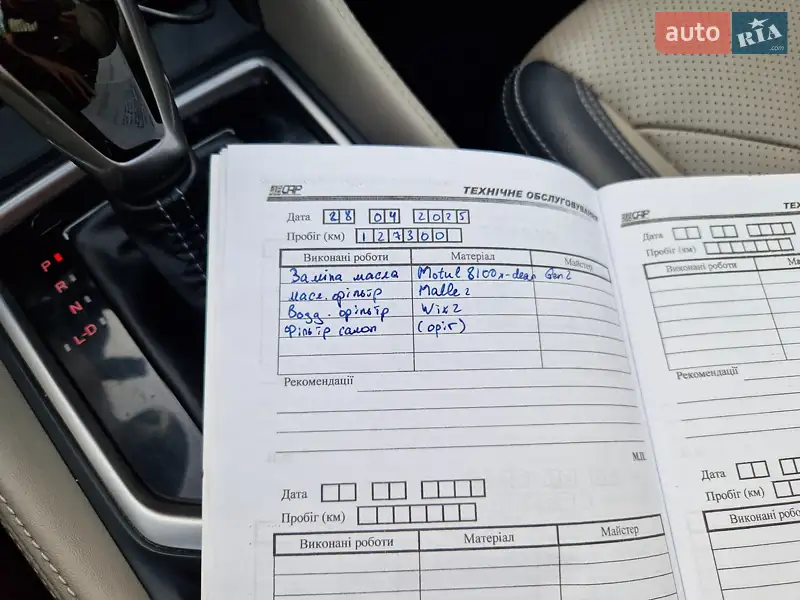 auto RIA .com
P
R
N
L-D
CAP ТЕХНІЧНЕ ОБСЛУГОВУВАННЯ
Дата 28 04 2025
Пробіг (км) 127300
Виконані роботи Матеріал Майстер
Заміна масла Motul 8100 x-clean Gen2
масл. фільтр Malle 2
возд. фільтр Wix 2
Фільтр салон (оріг)
Рекомендації
М.П.
Дата
Пробіг (км)
Виконані роботи Матеріал Майстер
CAP
Дата
Пробіг (км)
Виконані роботи
Рекомендації
Дата
Пробіг (км)
Виконані роботи